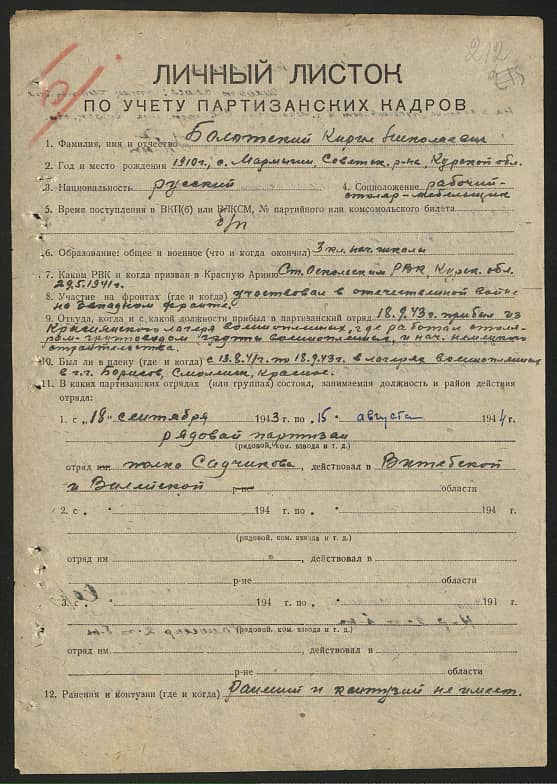 212
ЛИЧНЫЙ ЛИСТОК
ПО УЧЕТУ ПАРТИЗАНСКИХ КАДРОВ
1. Фамилия, имя и отчество Николаевич
2. Год и место рождения 1910 г., с. Советск. р-на, Курской обл.
3. Национальность русский 4. Соцположение рабочий-
столяр-мебельщик
5. Время поступления в ВКП(б) или ВЛКСМ, № партийного или комсомольского билета
б/п
6. Образование: общее и военное (что и когда окончил) 3 кл. нач. школы
7. Каким РВК и когда призван в Красную Армию Ст. Оскольским РВК Курск. обл.
29.5.1941 г.
8. Участие на фронтах (где и когда) участвовал в отечественной войне
на Западном фронте
9. Откуда, когда и с какой должности прибыл в партизанский отряд 18.9.43 г. прибыл из
лагеря военнопленных, где работал столя-
ром- группы военнопленных, и нач. немецкого
строительства.
10. Был ли в плену (где и когда) с 13.8.41 г. по 18.9.43 г. в лагерях военнопленных
в г.г. Борисов, Смоленск, Красное.
11. В каких партизанских отрядах (или группах) состоял, занимаемая должность и район действия
отряда:
1. с „18" сентября 1943 г. по „15" августа 1944 г.
рядовой партизан
(рядовой, ком. взвода и т. д.)
отряд им полка Садчикова, действовал в Витебской
и Вилейской р-не области
2. с „ " 194 г. по „ " 194 г.
(рядовой, ком. взвода и т. д.)
отряд им , действовал в
р-не области
3. с „ " 194 г. по „ " 194 г.
(рядовой, ком. взвода и т. д.)
отряд им , действовал в
р-не области
12. Ранения и контузии (где и когда) Ранений и контузий не имеет.